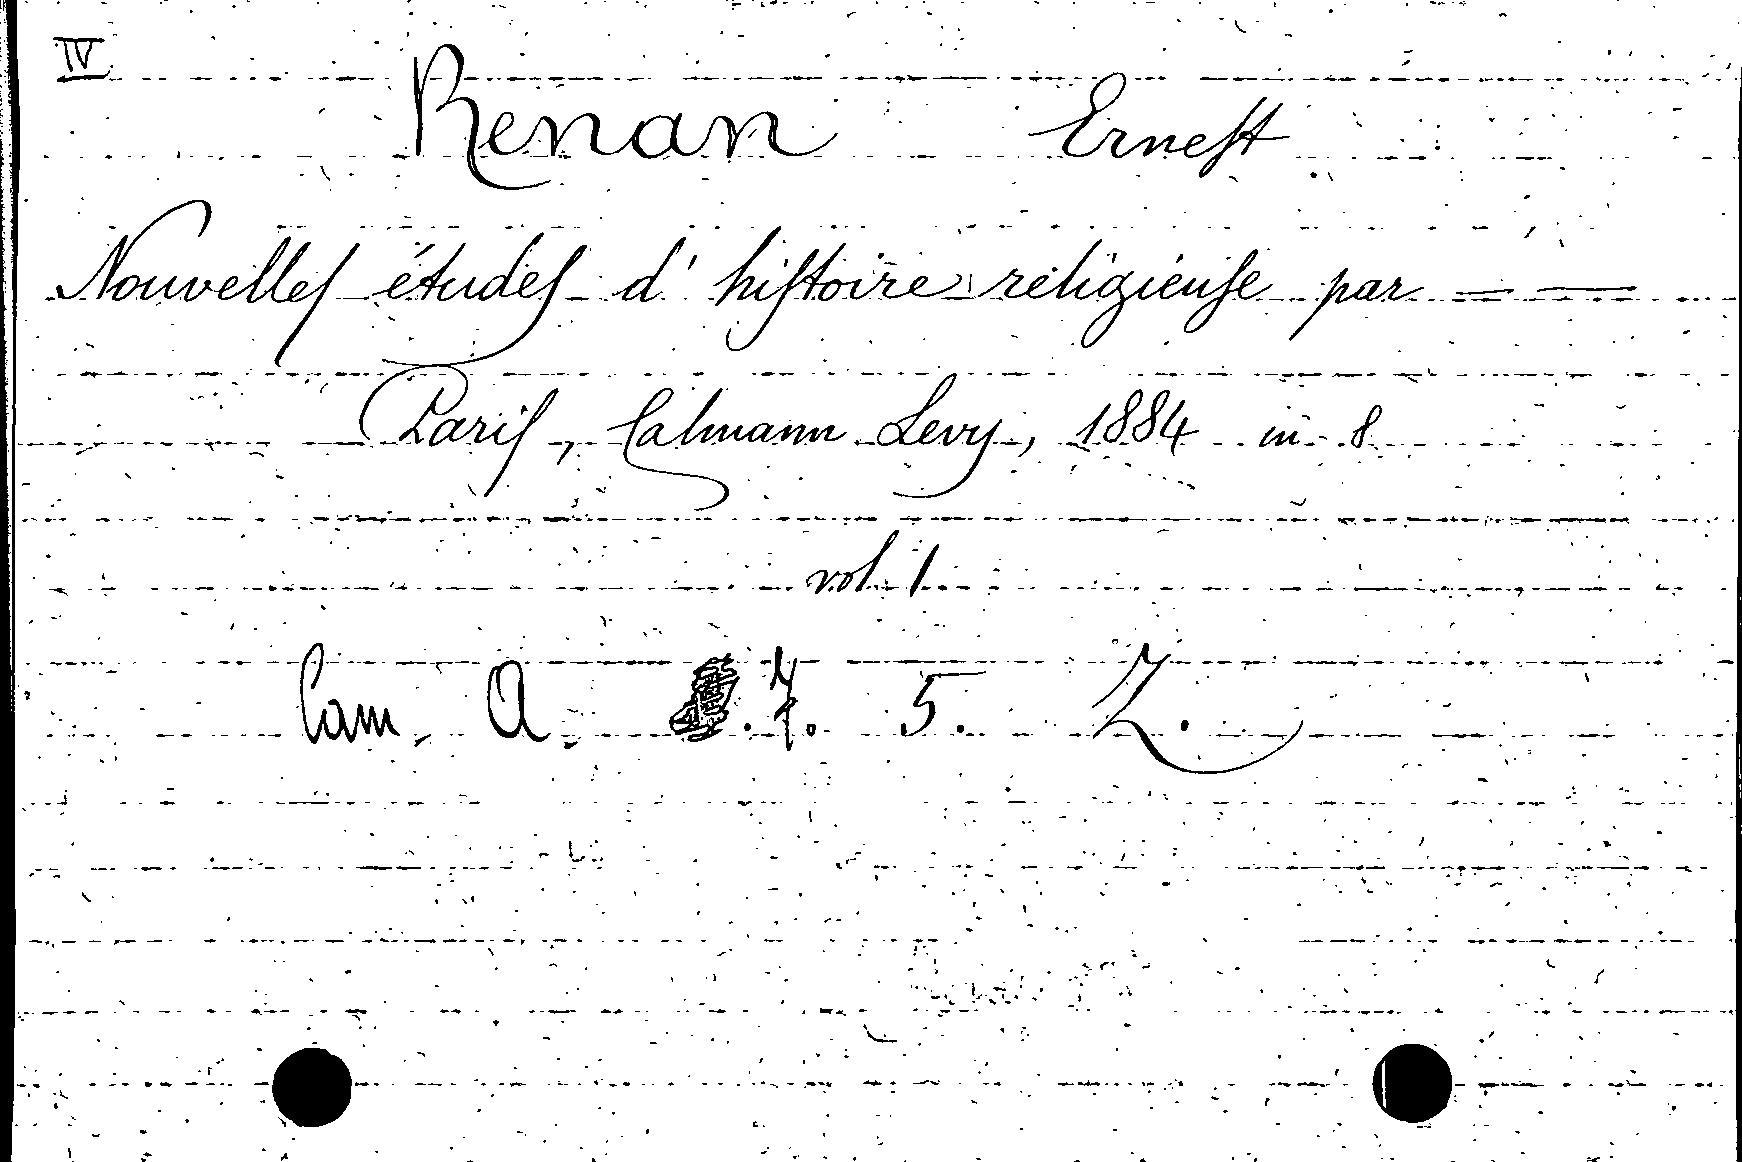 IV
Renan Ernest
Nouvelles études d'histoire religieuse par — —
Paris, Calmann Levy, 1884 in 8
vol. 1
Cam. A. 7. 5. Z.